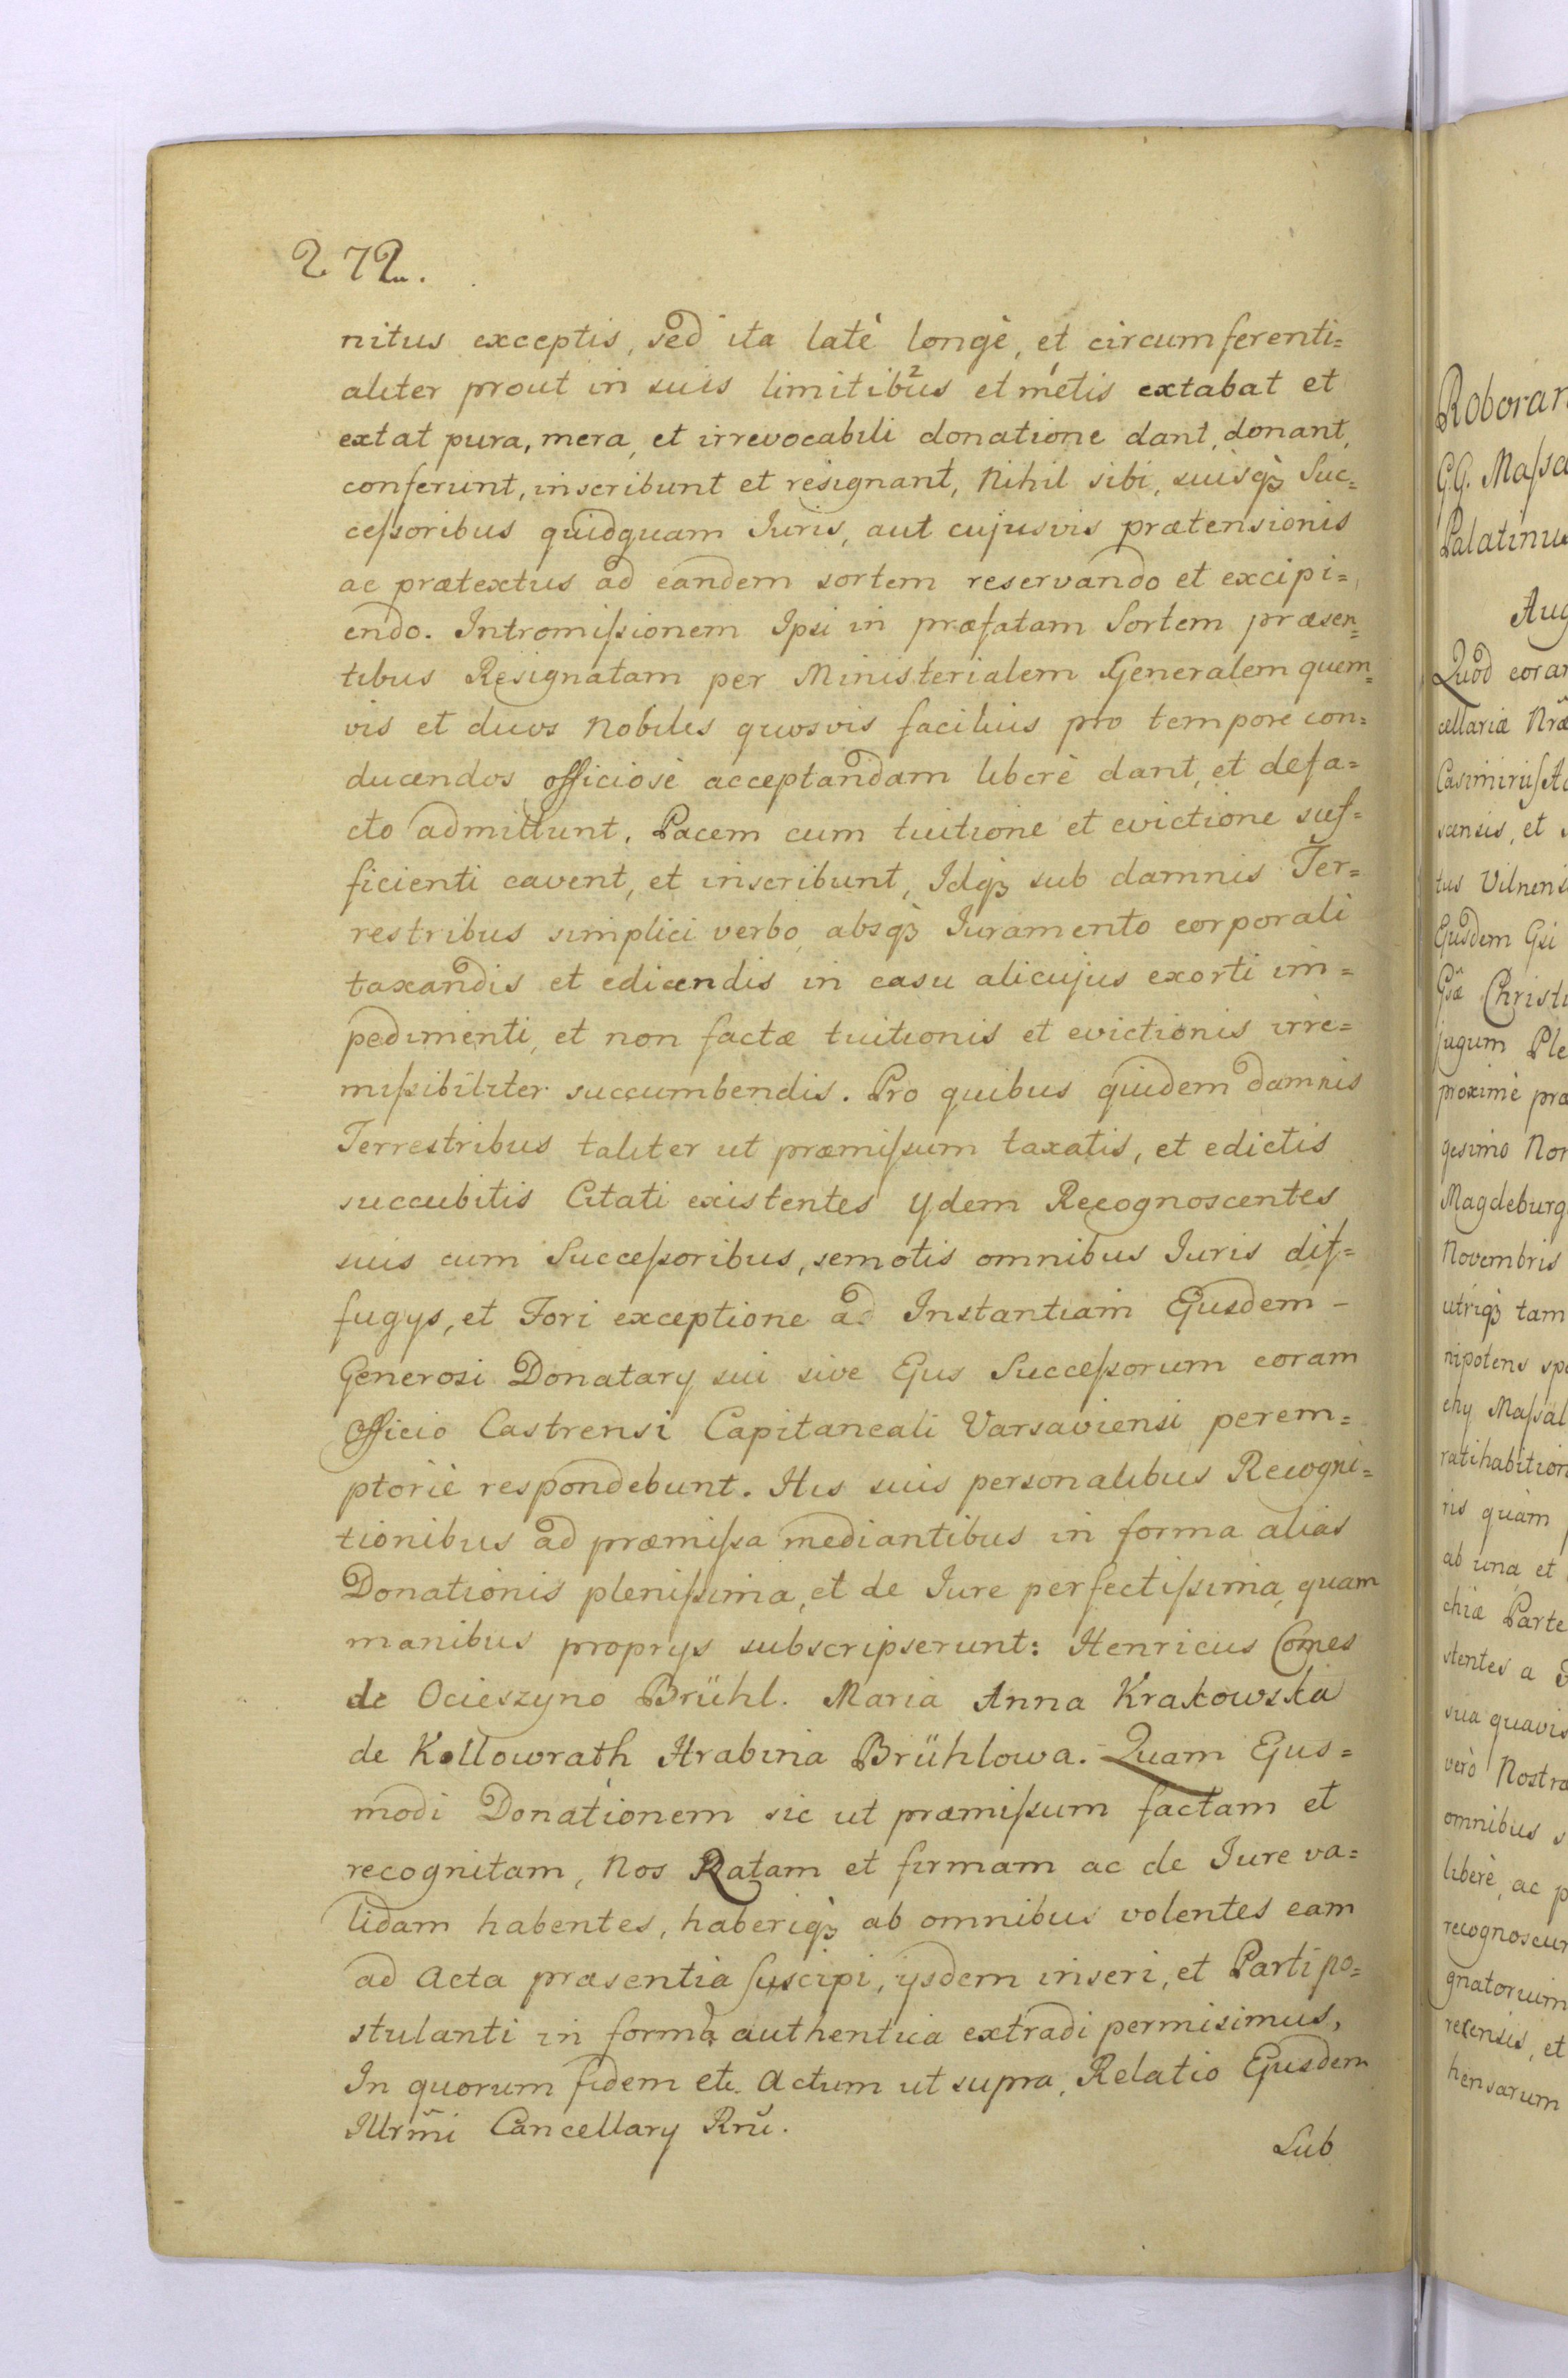 272.
nitus exceptis, sed ita latè longè, et circumferenti=
aliter prout in suis limitib²us et ḿetis extabat et
extat pura, mera, et irrevocabili donatione dant, donant,
conferunt, inscribunt et resignant, Nihil sibi, suisqꝫ Suc=
ceſsoribus quidquam Iuris, aut cujusvis prætensionis
ac prætextus ad eandem sortem reservando et excipi=
endo. Intromiſsionem Ipsi in præfatam Sortem præsen=
tibus Resignatam per Ministerialem Generalem quem=
vis et duos Nobiles quosvis facilius pro tempore con=
ducendos officiosè acceptandam liberè dant, et defa=
cto admittunt. Pacem cum tuitione et evictione suf=
ficienti cavent, et inscribunt, Idqꝫ sub damnis Ter=
restribus simplici verbo, absqꝫ Iuramento corporali
taxandis et edicendis in casu alicujus exorti im=
pedimenti, et non factæ tuitionis et evictionis irre=
miſsibiliter succumbendis. Pro quibus quidem damnis
Terrestribus taliter ut præmiſsum taxatis, et edictis
succubitis Citati existentes ydem Recognoscentes
suis cum Succeſsoribus, semotis omnibus Iuris dif=
fugys, et Fori exceptione ad Instantiam Ejusdem -
Generosi Donatary sui sive Ejus Succeſsorum coram
Officio Castrensi Capitaneali Varsaviensi perem=
ptoriè respondebunt. His suis personalibus Recogni=
tionibus ad præmiſsa mediantibus in forma alias
Donationis pleniſsima, et de Iure perfectiſsima, quam
manibus proprys subscripserunt: Henricus Comes
de Ocieszyno Brühl. Maria Anna Krakowska
de Kollowrath Hrabina Brühlowa. Quam Ejus=
modi Donationem sic ut præmiſsum factam et
recognitam, Nos Ratam et firmam ac de Iure va=
lidam habentes, haberiqꝫ ab omnibus volentes eam
ad Acta præsentia suscipi, ysdem inseri, et Parti po=
stulanti in formâ authentica extradi permisimus,
In quorum fidem etc. Actum ut supra, Relatio Ejusdem
Illrm̃i Cancellary Rñi.
Sub
Roboran
GG. Maſsa
Palatinus
Aug
Quod coram
cellariæ Nr̃æ
sæensis, et
tus Vilnens
Ejusdem Gsi
Gsæ Christi
jugum Ple
proximè præ
gesimo Non
Magdeburg
Novembris
utriqꝫ tam
nipotens spe
chy Maſsal
ratihabition
ris quàm
ab una, et
chiæ Parte
stentes a
sua quavis
verò Nostra
omnibus s
liberè, ac p
recognoscun
gnatorum
recensis, et
hensarum